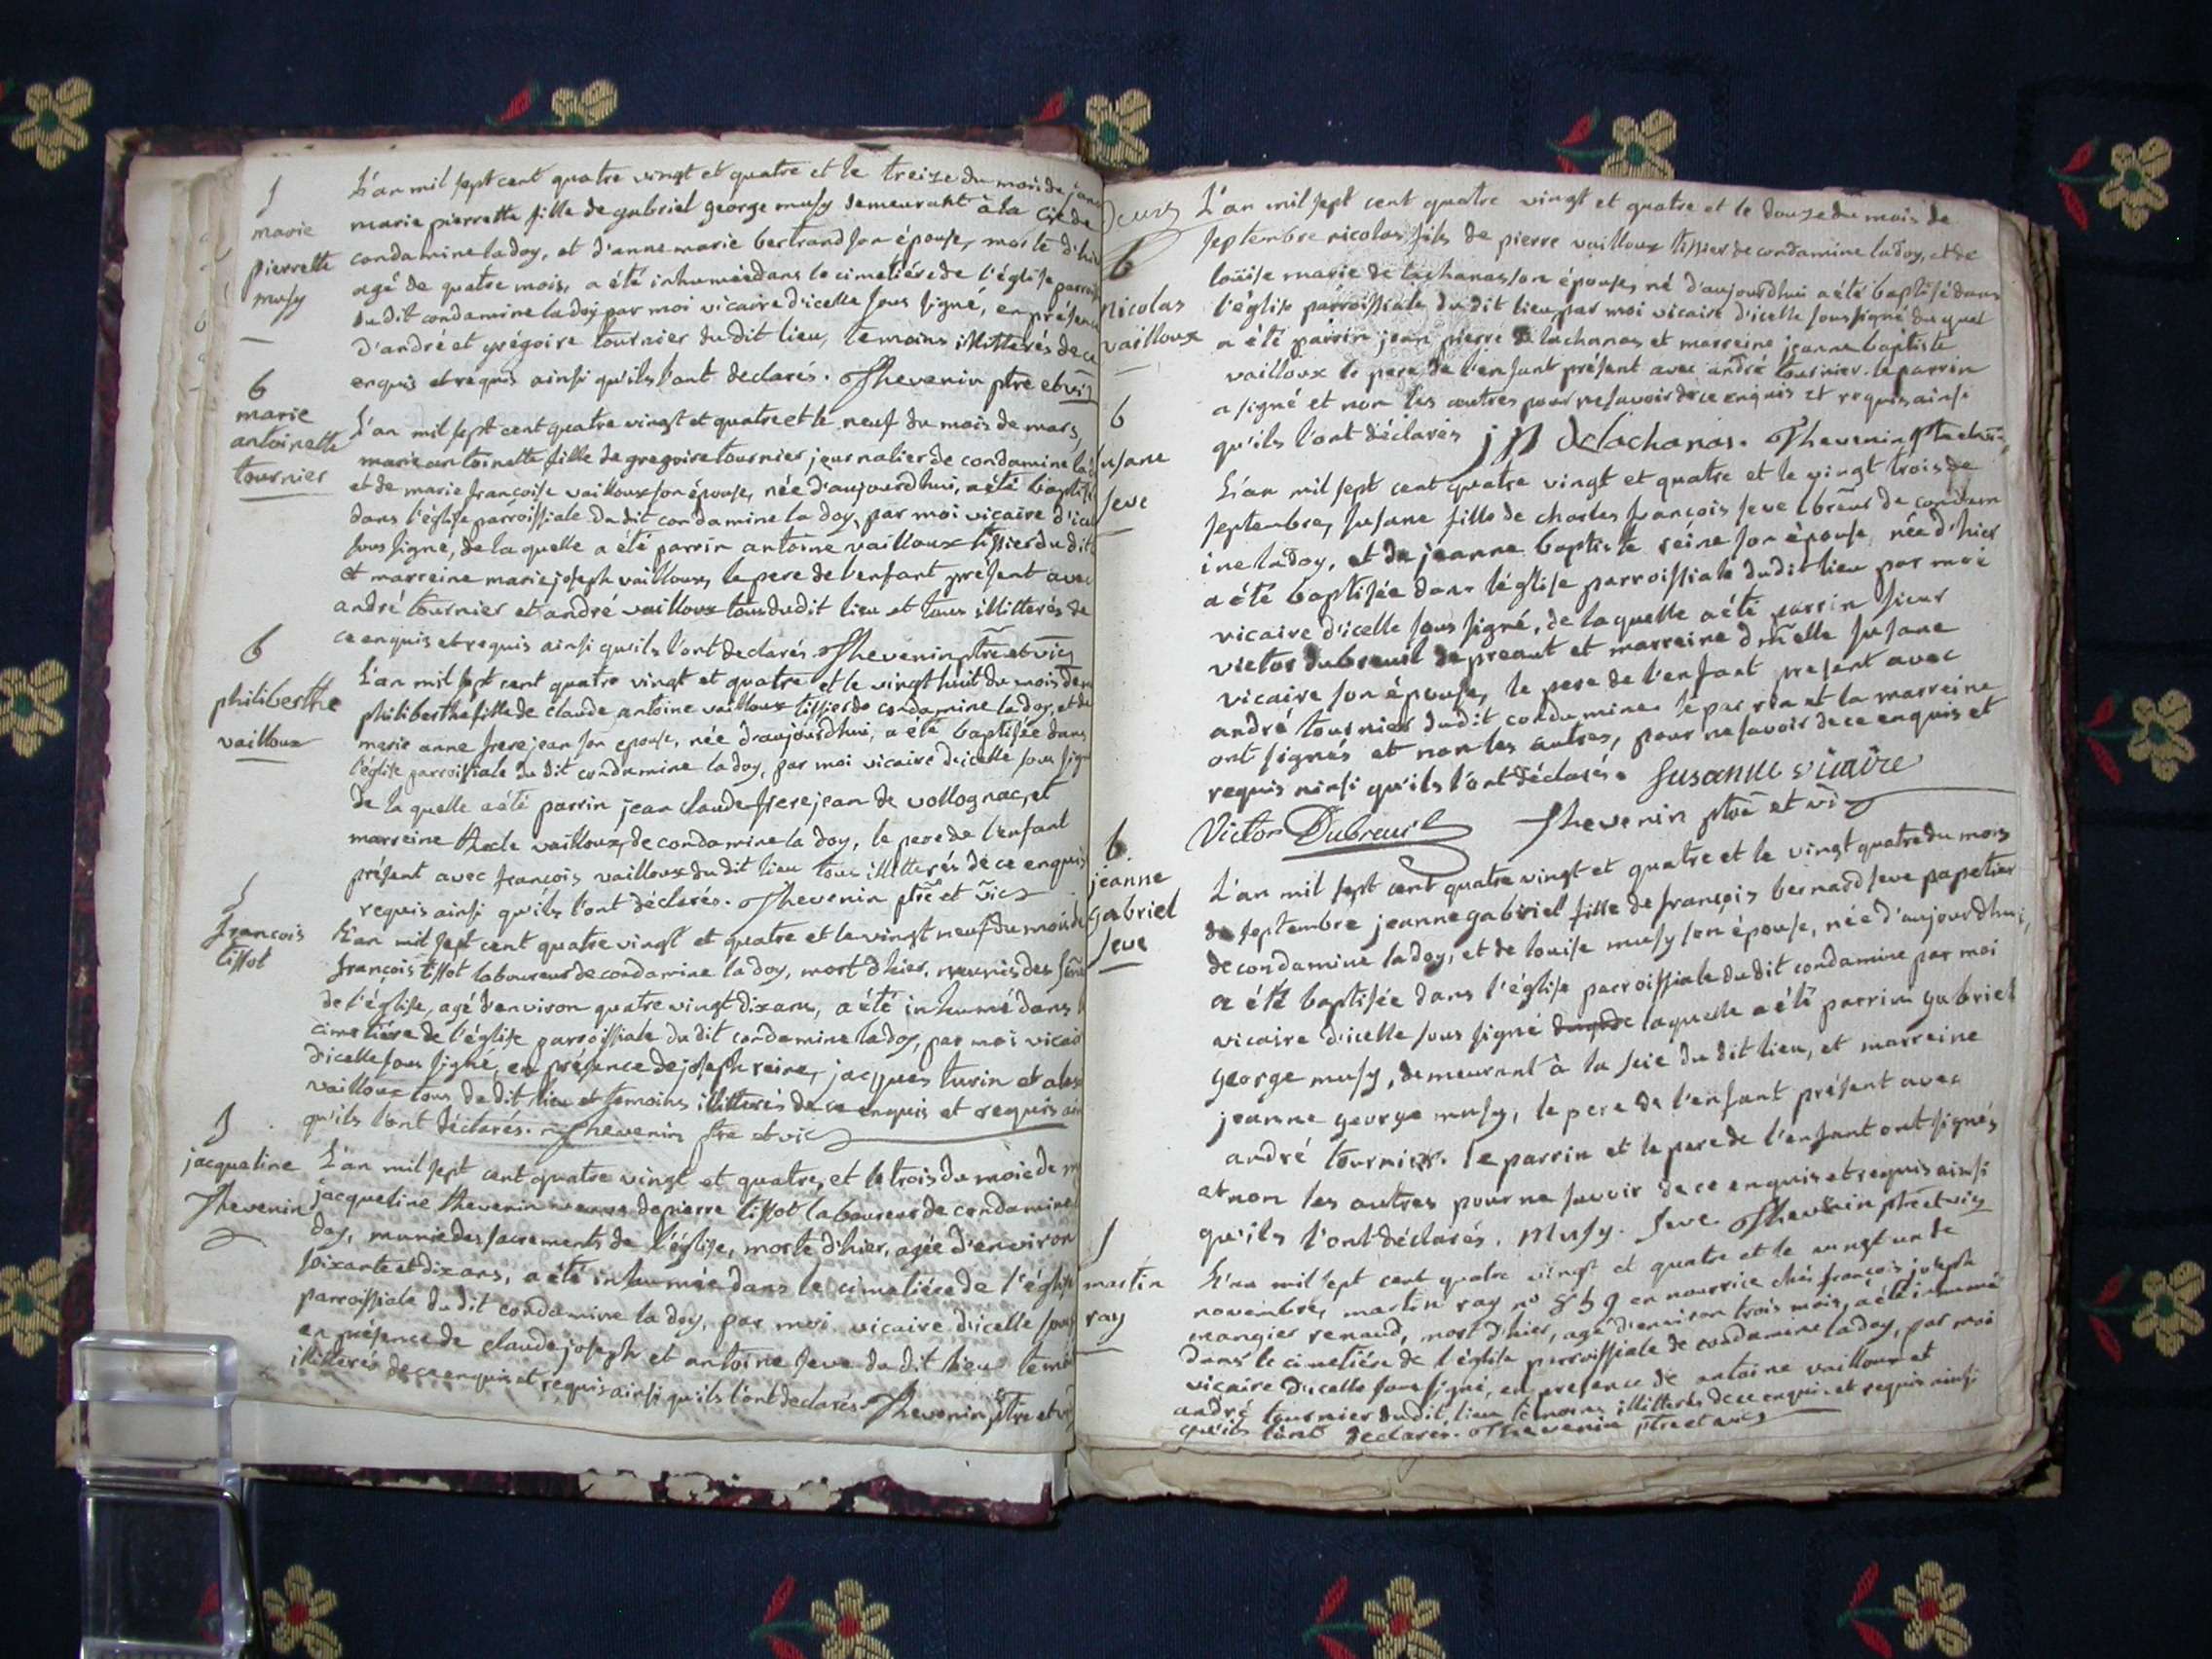 S
marie
pierrette
musy
L'an mil sept cent quatre vingt et quatre et le treize du mois de janv
marie pierrette fille de gabriel george musy demeurant à la cie de
condamine la doy, et d'anne marie bertrand son épouse, morte d'hier
agé de quatre mois, a été inhumée dans le cimetiére de l'église parroi
du dit condamine la doy par moi vicaire d'icelle sous signé, en présence
d'andré et grégoire tournier du dit lieu, temoins illitterés de ce
enquis et requis ainsi qu'ils l'ont declarés. Thevenin ptre et vic
b
marie
antoinette
tournier
L'an mil sept cent quatre vingt et quatre et le neuf du mois de mars,
marie antoinette fille de gregoire tournier journalier de condamine la d
et de marie françoise vailloux son épouse, née d'aujourd'hui, a été baptisé
dans l'église parroissiale du dit condamine la doy, par moi vicaire d'icel
sous signé, de laquelle a été parrin antoine vailloux tissier du dit
et marreine marie joseph vailloux, le pere de l'enfant présent avec
andré tournier et andré vailloux tous du dit lieu et tous illitterés de
ce enquis et requis ainsi qu'ils l'ont declarés. Thevenin ptre et vic
b
philiberthe
vailloux
L'an mil sept cent quatre vingt et quatre et le vingt huit du mois de m
philiberthe fille de claude antoine vailloux tissier de condamine la doy, et de
marie anne frerejean son epouse, née d'aujourd'hui, a été baptisée dans
l'église parroissiale du dit condamine la doy, par moi vicaire d'icelle sous sign
de la quelle a été parrin jean claude frerejean de vollognac, et
marreine thecle vailloux, de condamine la doy, le pere de l'enfant
présent avec françois vailloux du dit lieu tous illitterés de ce enquis
requis ainsi qu'ils l'ont déclarés. Thevenin ptre et vic
S
françois
tissot
L'an mil sept cent quatre vingt et quatre et le vingt neuf du mois de
françois tissot laboureur de condamine la doy, mort d'hier, munis des
de l'église, agé d'environ quatre vingt dix ans, a été inhumé dans l
cimetiére de l'église parroissiale du dit condamine la doy, par moi vicair
d'icelle sous signé, en présence de joseph reine, jacques turin et
vailloux tous du dit lieu et temoins illitterés de ce enquis et requis ain
qu'ils l'ont déclarés. Thevenin ptre et vic
S
jacqueline
Thevenin
L'an mil sept cent quatre vingt et quatre, et le trois du mois de m
jacqueline thevenin veuve de pierre tissot laboureur de condamine l
doy, munie des sacrements de l'église, morte d'hier, agée d'environ
soixante et dix ans, a été inhumée dans le cimetiére de l'église
parroissiale du dit condamine la doy, par moi vicaire d'icelle sous
en présence de claude joseph et antoine seve du dit lieu temoi
illitterés de ce enquis et requis ainsi qu'ils l'ont declarés. Thevenin ptre et vi
deux
b
nicolas
vailloux
L'an mil sept cent quatre vingt et quatre et le douze du mois de
septembre nicolas fils de pierre vailloux tissier de condamine la doy, et de
loüise marie de lachanas son épouse, né d'aujourd'hui a été baptisé dans
l'église parroissiale du dit lieu par moi vicaire d'icelle sous signé du quel
a été parrin jean pierre de lachanas et marreine jeanne baptiste
vailloux le pere de l'enfant présent avec andré tournier. le parrin
a signé et non les autres pour ne savoir de ce enquis et requis ainsi
qu'ils l'ont déclarés j p delachanas. Thevenin ptre et vic
b
susane
seve
L'an mil sept cent quatre vingt et quatre et le vingt trois de
septembre, susane fille de charles françois seve lbreur de condam
ine la doy, et de jeanne baptiste réine son épouse, née d'hier
a été baptisée dans l'église parroissiale du dit lieu par moi
vicaire d'icelle sous signé, de laquelle a été parrin sieur
victor dubreuil de preaut et marreine dmelle susane
vicaire son épouse, le pere de l'enfant present avec
andré tournier du dit condamine. le parrin et la marreine
ont signés et non les autres, pour ne savoir de ce enquis et
requis ainsi qu'ils l'ont déclarés. Susanne vicaire
Victor Dubreuil Thevenin ptre et vic
b
jeanne
gabriel
seve
L'an mil sept cent quatre vingt et quatre et le vingt quatre du mois
de septembre jeanne gabriel fille de françois bernard seve papetier
de condamine la doy, et de louise musy son épouse, née d'aujourdhui,
a été baptisée dans l'église parroissiale du dit condamine par moi
vicaire d'icelle sous signé de laquelle a été parrin gabriel
george musy, demeurant à la scie du dit lieu, et marreine
jeanne george musy, le pere de l'enfant présent avec
andré tournier. le parrin et le pere de l'enfant ont signés
et non les autres pour ne savoir de ce enquis et requis ainsi
qu'ils l'ont déclarés. Musy. Seve. Thevenin ptre et vic
S
martin
ray
L'an mil sept cent quatre vingt et quatre et le vingt un de
novembre, martin ray n° 859 en nourrice chés françois joseph
mangier renaud, mort d'hier, agé d'environ trois mois, a été inhumé
dans le cimetiére de l'église parroissiale de condamine la doy, par moi
vicaire d'icelle sous signé, en presence de antoine vailloux et
andré tournier du dit lieu temoins illitterés de ce enquis et requis ainsi
qu'ils l'ont déclarés. Thevenin ptre et vic